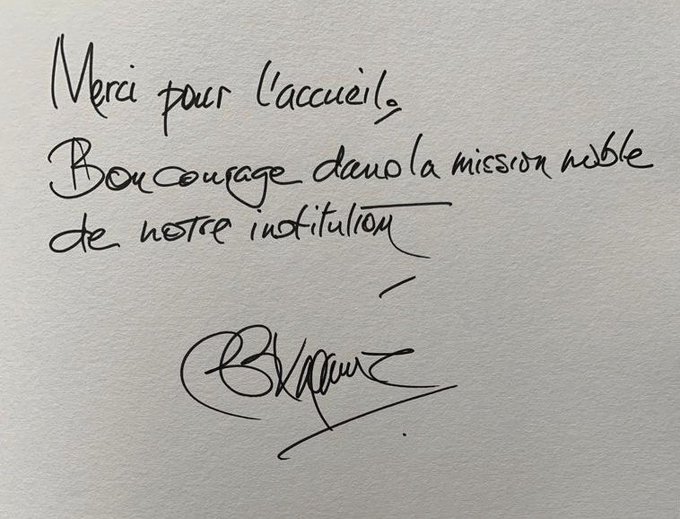 Merci pour l'accueil,
Bon courage dans la mission noble
de notre institution